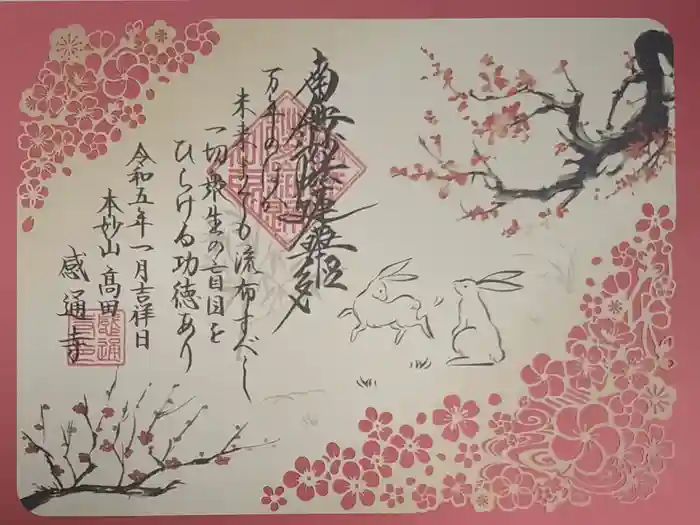 南無妙法蓮華経
万年のほか
未来までも流布すべし
一切衆生の盲目を
ひらける功徳あり
令和五年一月吉祥日
本妙山高田
感通寺